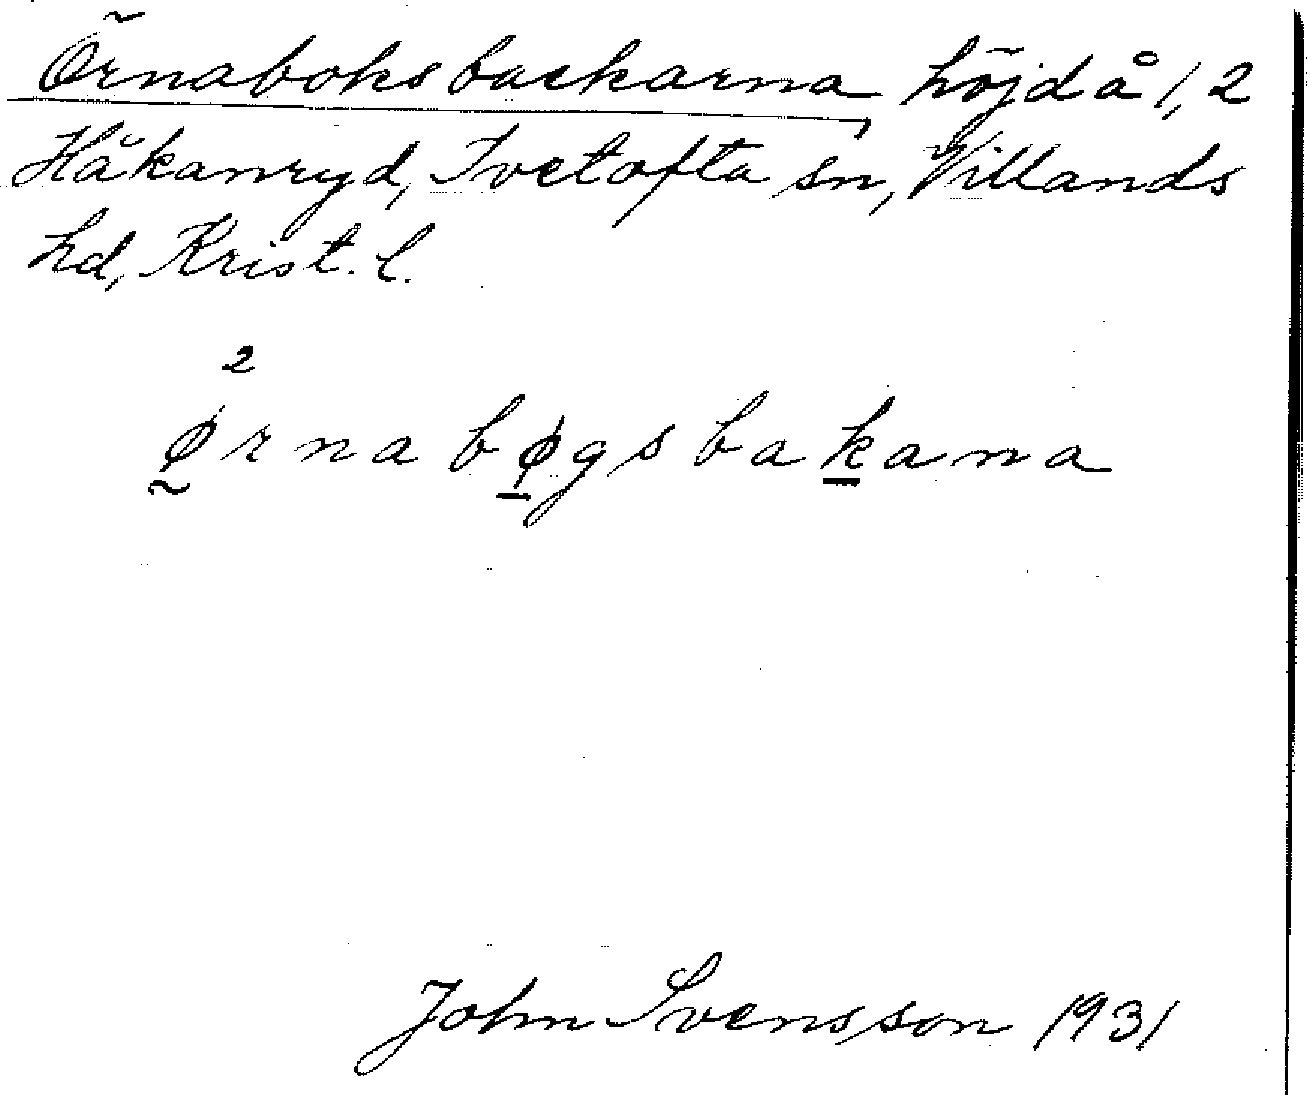 Örnaboksbackarna, höjd å 1,2
Håkanryd, Ivetofta sn, Villands
hd, Krist. l.
2
ørnabøgsbakana
John Svensson 1931